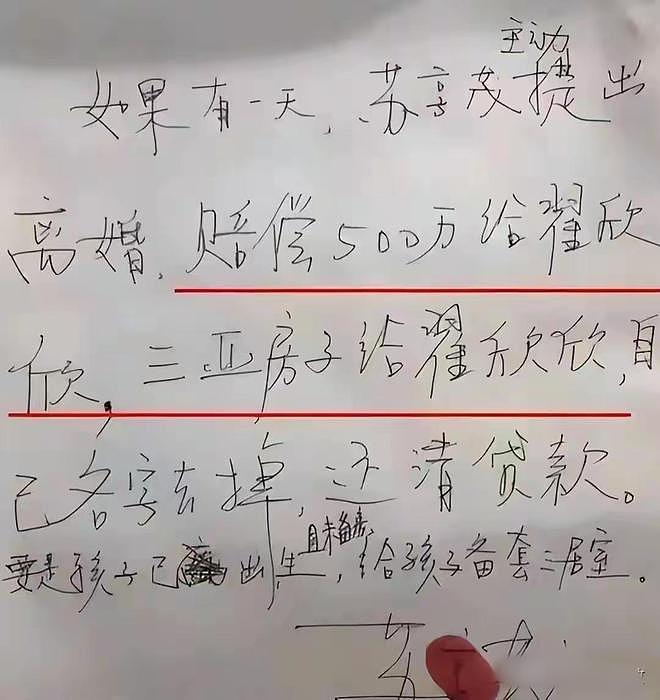 主动
如果有一天,苏享茂提出
离婚,赔偿500万给翟欣
欣,三亚房子给翟欣欣,自
己名字去掉,还清贷款。
且未
要是孩子已出生,给孩子备套三居室。
苏